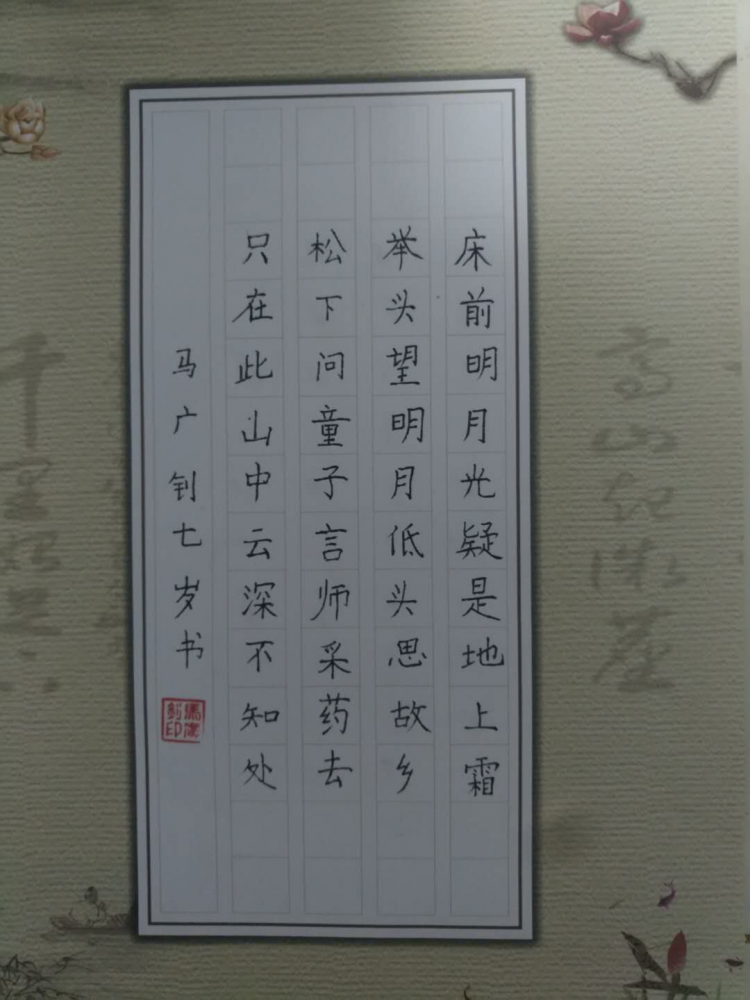 床前明月光疑是地上霜
举头望明月低头思故乡
松下问童子言师采药去
只在此山中云深不知处
马广钊七岁书